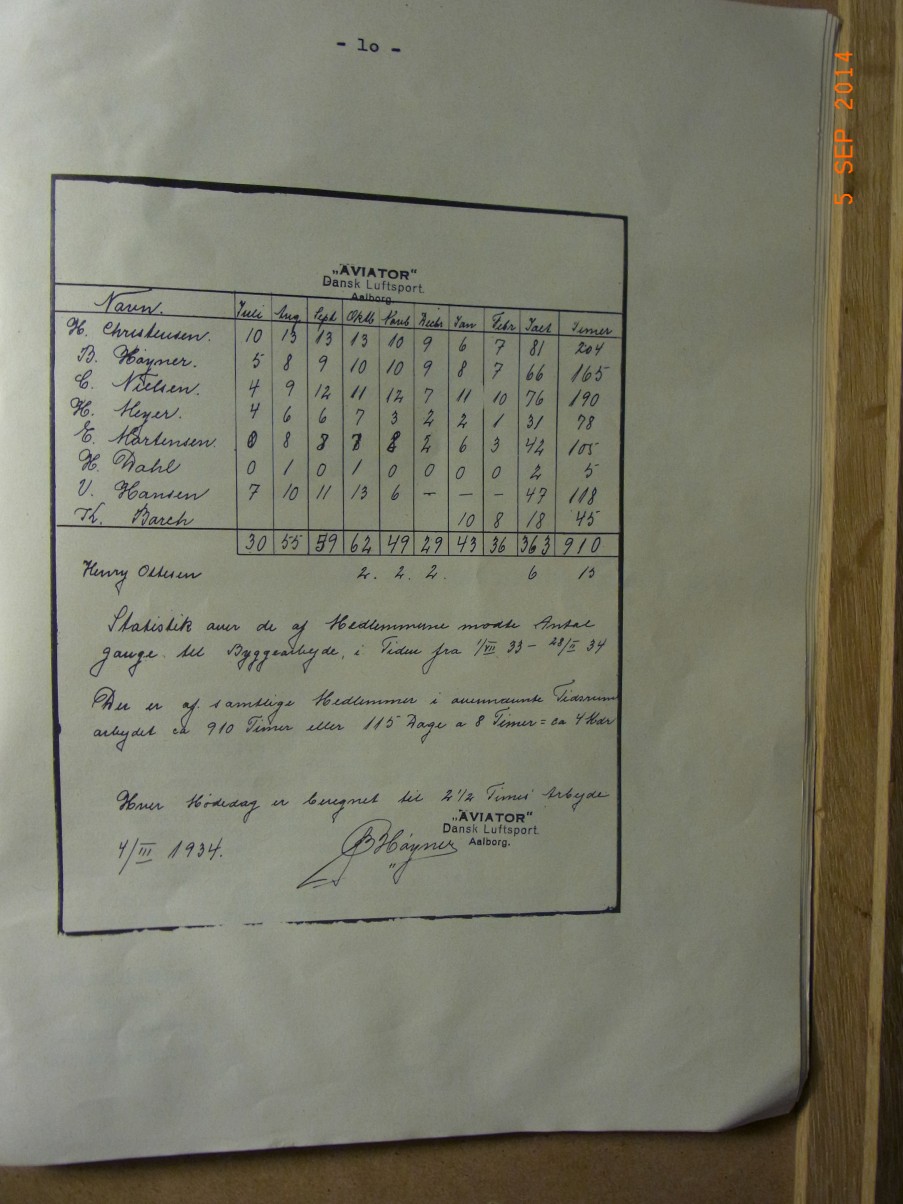 - 1o -
5 SEP 2014
„AVIATOR"
Dansk Luftsport.
Aalborg.
Navn. Juli Aug Sept Oktb Novb Decbr Jan Febr Ialt Timer
H. Christensen. 10 13 13 13 10 9 6 7 81 204
B. Høyner. 5 8 9 10 10 9 8 7 66 165
C. Nielsen. 4 9 12 11 12 7 11 10 76 190
H. Meyer. 4 6 6 7 3 2 2 1 31 78
E. Mortensen. 0 8 8 7 8 2 6 3 42 105
H. Dahl 0 1 0 1 0 0 0 0 2 5
V. Hansen 7 10 11 13 6 - - - 47 118
K. Barch 10 8 18 45
30 55 59 62 49 29 43 36 363 910
Henry Ottesen 2. 2. 2. 6 15
Statistik over de af Medlemmerne mødte Antal
gange til Byggearbejde, i Tiden fra 1/VII 33 - 28/II 34
Der er af samtlige Medlemmer i ovennævnte Tidsrum
arbejdet ca 910 Timer eller 115 Dage a 8 Timer = ca 4 Mdr
Hver Mødedag er beregnet til 2 1/2 Times Arbejde
„AVIATOR"
Dansk Luftsport.
Aalborg.
4/III 1934. B Høyner